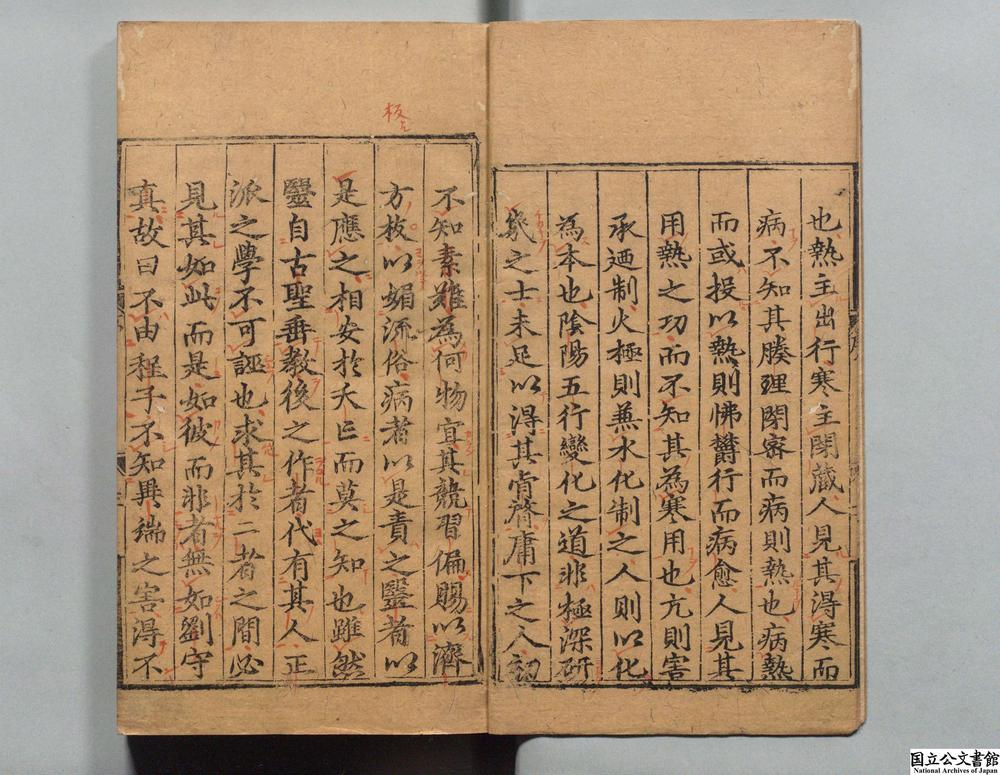 也熱主出行寒主閉藏人見其得寒而
病不知其腠理閉密而病則熱也病熱
而或投以熱則怫欝行而病愈人見其
用熱之功而不知其為寒用也亢則害
承廼制火極則兼水化制之人則以化
為本也陰陽五行變化之道非極深研
幾之士未足以得其肯綮庸下之人初
板
不知素難為何物宜其競習偏賜以濟
方技以媚流俗病者以是責之毉者以
是應之相安於夭亡而莫之知也雖然
毉自古聖垂教後之作者代有其人正
派之學不可誣也求其於二者之間必
見其如此而是如彼而非者無如劉守
真故曰不由程子不知異端之害得不
国立公文書館
National Archives of Japan